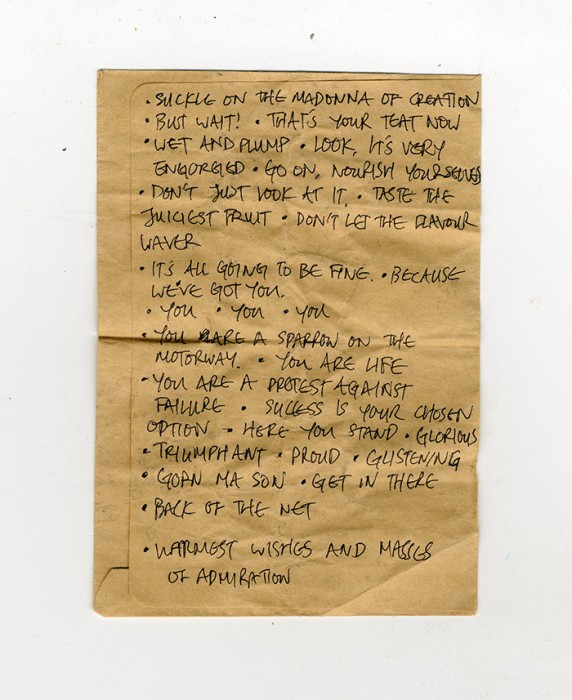 • SUCKLE ON THE MADONNA OF CREATION
• BUT WAIT! • THAT'S YOUR TEAT NOW
• WET AND PLUMP • LOOK, IT'S VERY
ENGORGED • GO ON, NOURISH YOURSELVES
• DON'T JUST LOOK AT IT, • TASTE THE
JUICIEST FRUIT • DON'T LET THE FLAVOUR
WAVER
• IT'S ALL GOING TO BE FINE. • BECAUSE
WE'VE GOT YOU.
• YOU • YOU • YOU
• YOU ARE A SPARROW ON THE
MOTORWAY. • YOU ARE LIFE
• YOU ARE A PROTEST AGAINST
FAILURE • SUCCESS IS YOUR CHOSEN
OPTION • HERE YOU STAND • GLORIOUS
• TRIUMPHANT • PROUD • GLISTENING
• GOAN MA SON • GET IN THERE
• BACK OF THE NET
• WARMEST WISHES AND MASSES
OF ADMIRATION